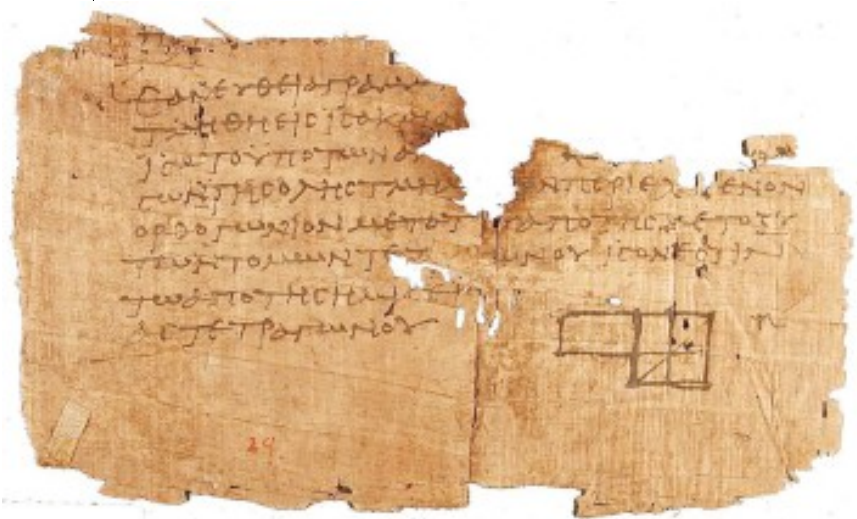 ΕΑΝ ΕΥΘΕΙΑ ΓΡΑΜΜ
ΤΜΗΘΗ ΕΙϹ ΙϹΑ Κ
ΙϹΑ ΤΟ ΥΠΟ ΤΩΝ
ϹΩΝ ΤΗϹ ΟΛΗϹ ΤΜΗΜ ΩΝ ΠΕΡΙΕΧΟΜΕΝΟΝ
ΟΡΘΟΓΩΝΙΟΝ ΜΕΤΑ ΤΟΥ ΑΠΟ ΤΗϹ ΜΕΤΟΞΥ
ΤΩΝ ΤΟΜΩΝ ΤΕΤ ΩΝΟΥ ΙϹΟΝ ΕϹΤΙΝ
ΤΩ ΑΠΟ ΤΗϹ ΗΜΙϹΕΙ
ΑϹ ΤΕΤΡΑΓΩΝΟΥ
29